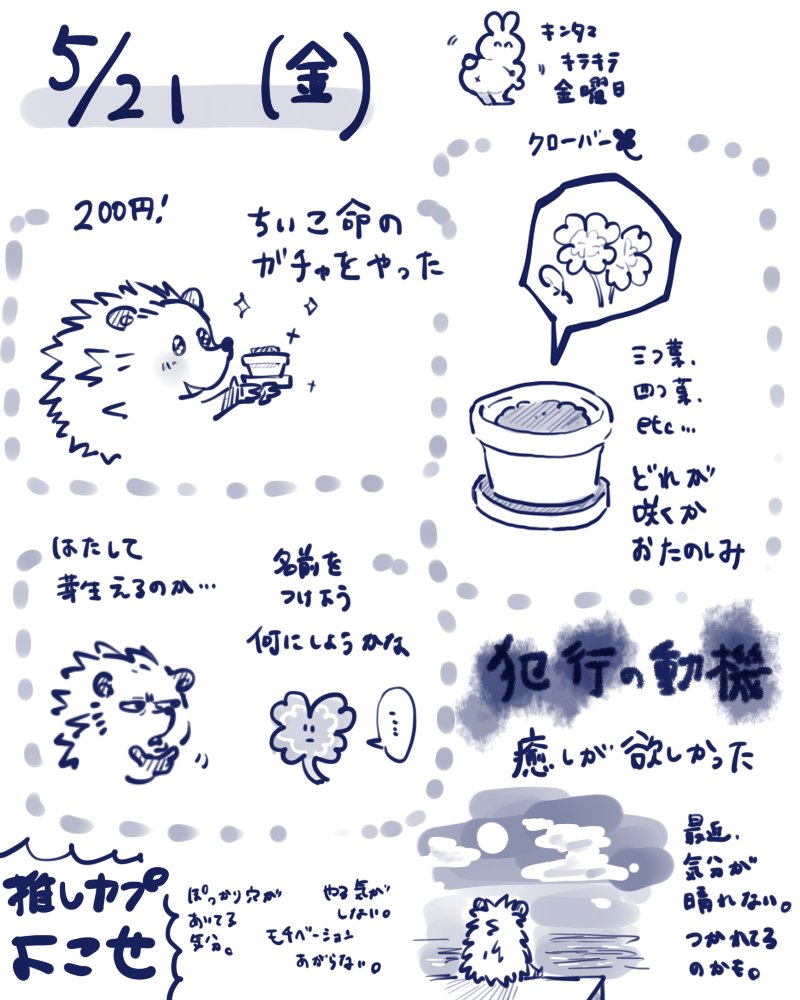 5/21 (金)
キンタマ
キラキラ
金曜日
200円!
ちいこ命の
ガチャをやった
クローバー
三つ葉、
四つ葉、
etc…
どれが
咲くか
おたのしみ
はたして
芽生えるのか…
名前を
つけよう
何にしようかな
…
犯行の動機
癒しが欲しかった
推しカプ
よこせ
ぽっかり穴が
あいてる
気分。
やる気が
しない。
モチベーション
あがらない。
最近、
気分が
晴れない。
つかれてる
のかも。